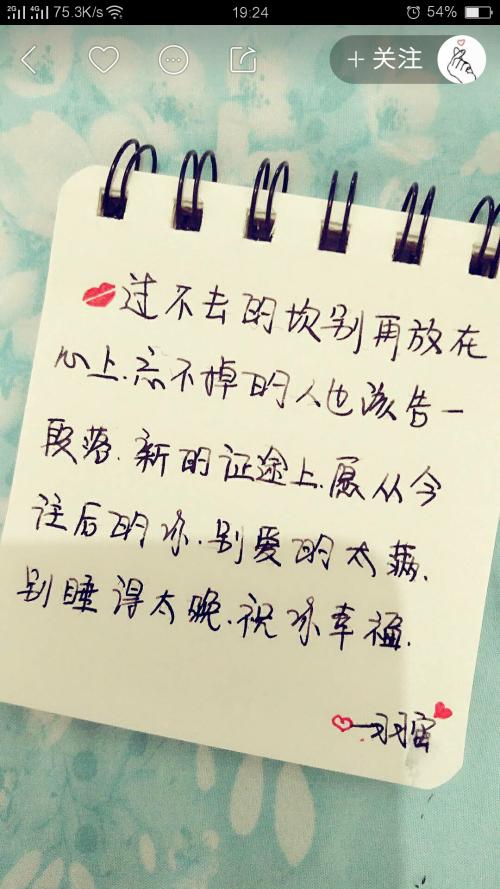 2G 4G 75.3K/s 19:24 54%
+ 关注
过不去的坎别再放在
心上.忘不掉的人也该告一
段落.新的证途上.愿从今
往后的你.别爱的太满.
别睡得太晚.祝你幸福.
—羽